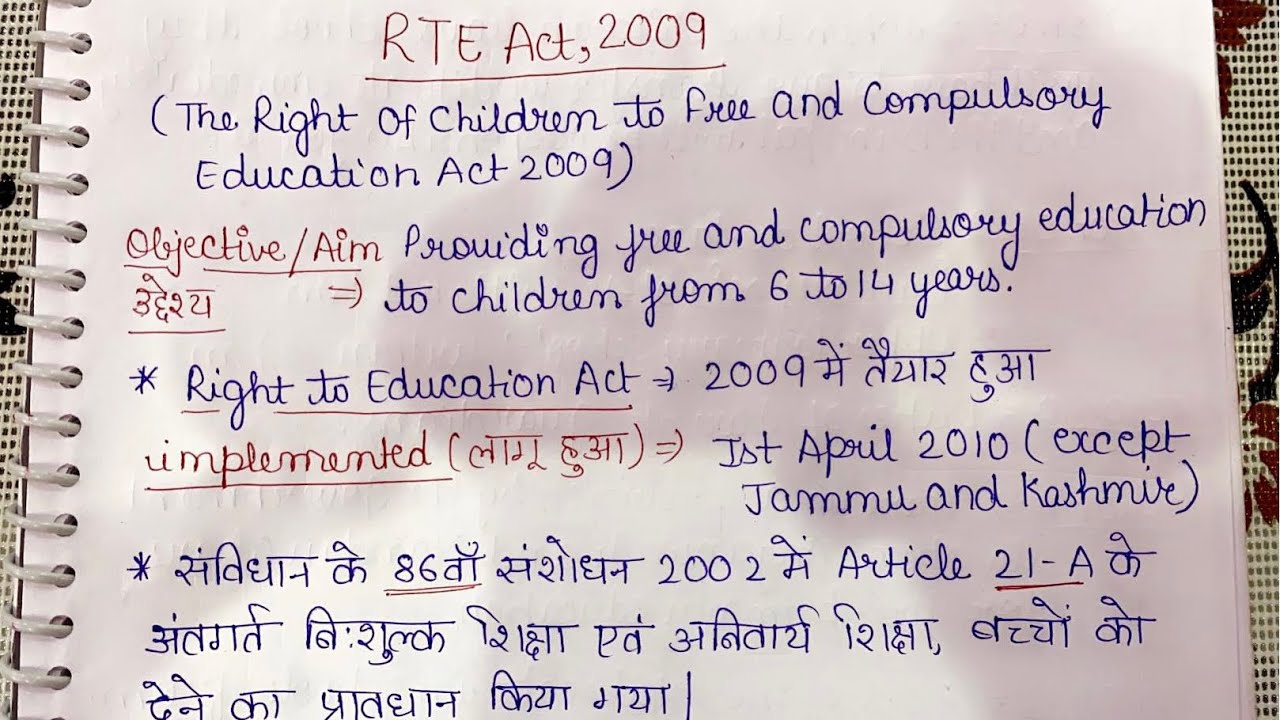 RTE Act, 2009
(The Right Of Children to Free and Compulsory
Education Act 2009)
Objective/Aim Providing free and compulsory education
उद्देश्य ⇒ to children from 6 to 14 years.
* Right to Education Act ⇒ 2009 में तैयार हुआ
implemented (लागू हुआ) ⇒ Ist April 2010 (except
Jammu and Kashmir)
* संविधान के 86वाँ संशोधन 2002 में Article 21-A के
अंतगर्त नि:शुल्क शिक्षा एवं अनिवार्य शिक्षा, बच्चों को
देने का प्रावधान किया गया|